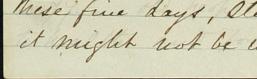 these five days, 
it might not be